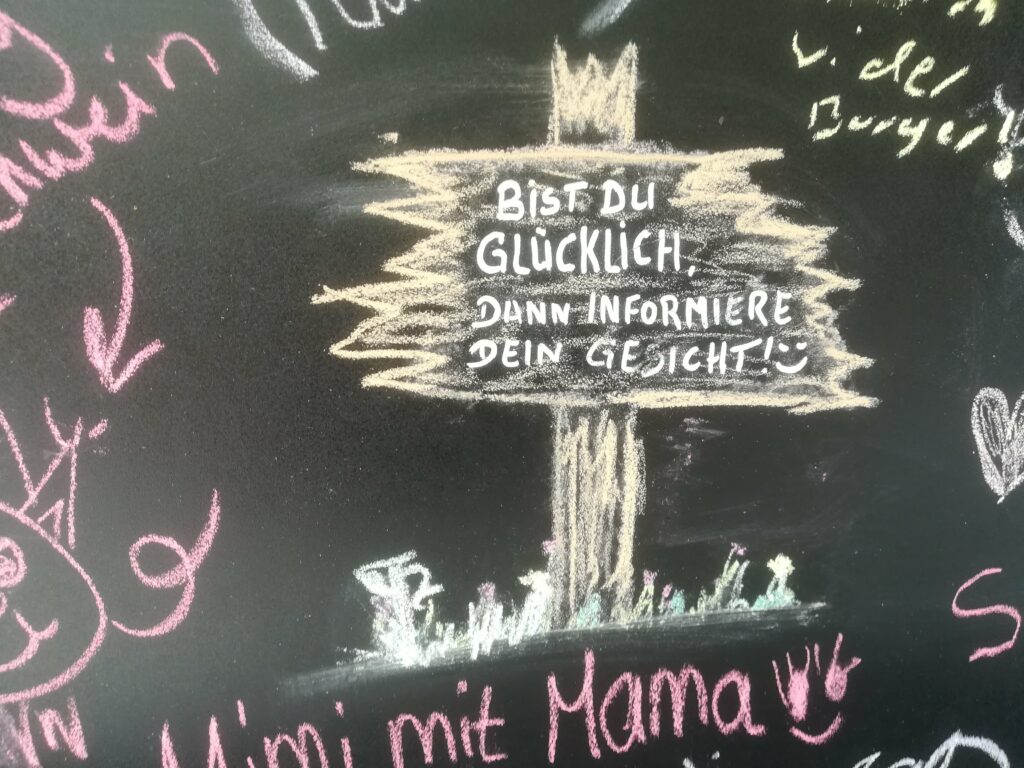 der
Burger!
BIST DU
GLÜCKLICH,
DANN INFORMIERE
DEIN GESICHT!
Mimi mit Mama